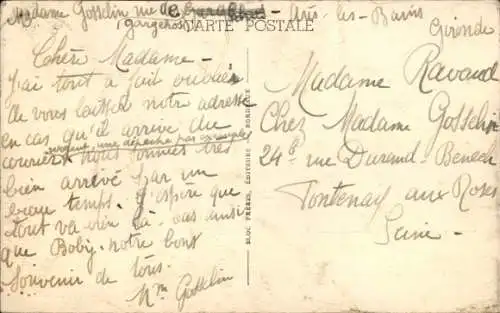 Madame Gosselin rue de
Arès-les-Bains
Gironde
CARTE POSTALE
Chère Madame -
J'ai tout à fait oublier
de vous laisser notre adresse
en cas qu'il arrive du
courrier urgent, une dépêche par exemple
nous sommes très
bien arrivé par un
beau temps. J'espère que
tout va bien là-bas ainsi
que Boby. notre bons
Souvenir de tous.
Mme Gosselin
BLOC FRÈRES, ÉDITEURS BORDEAUX
Madame Ravaud
Chez Madame Gosselin
24B rue Durand-Benech
Fontenay aux Roses
Seine -